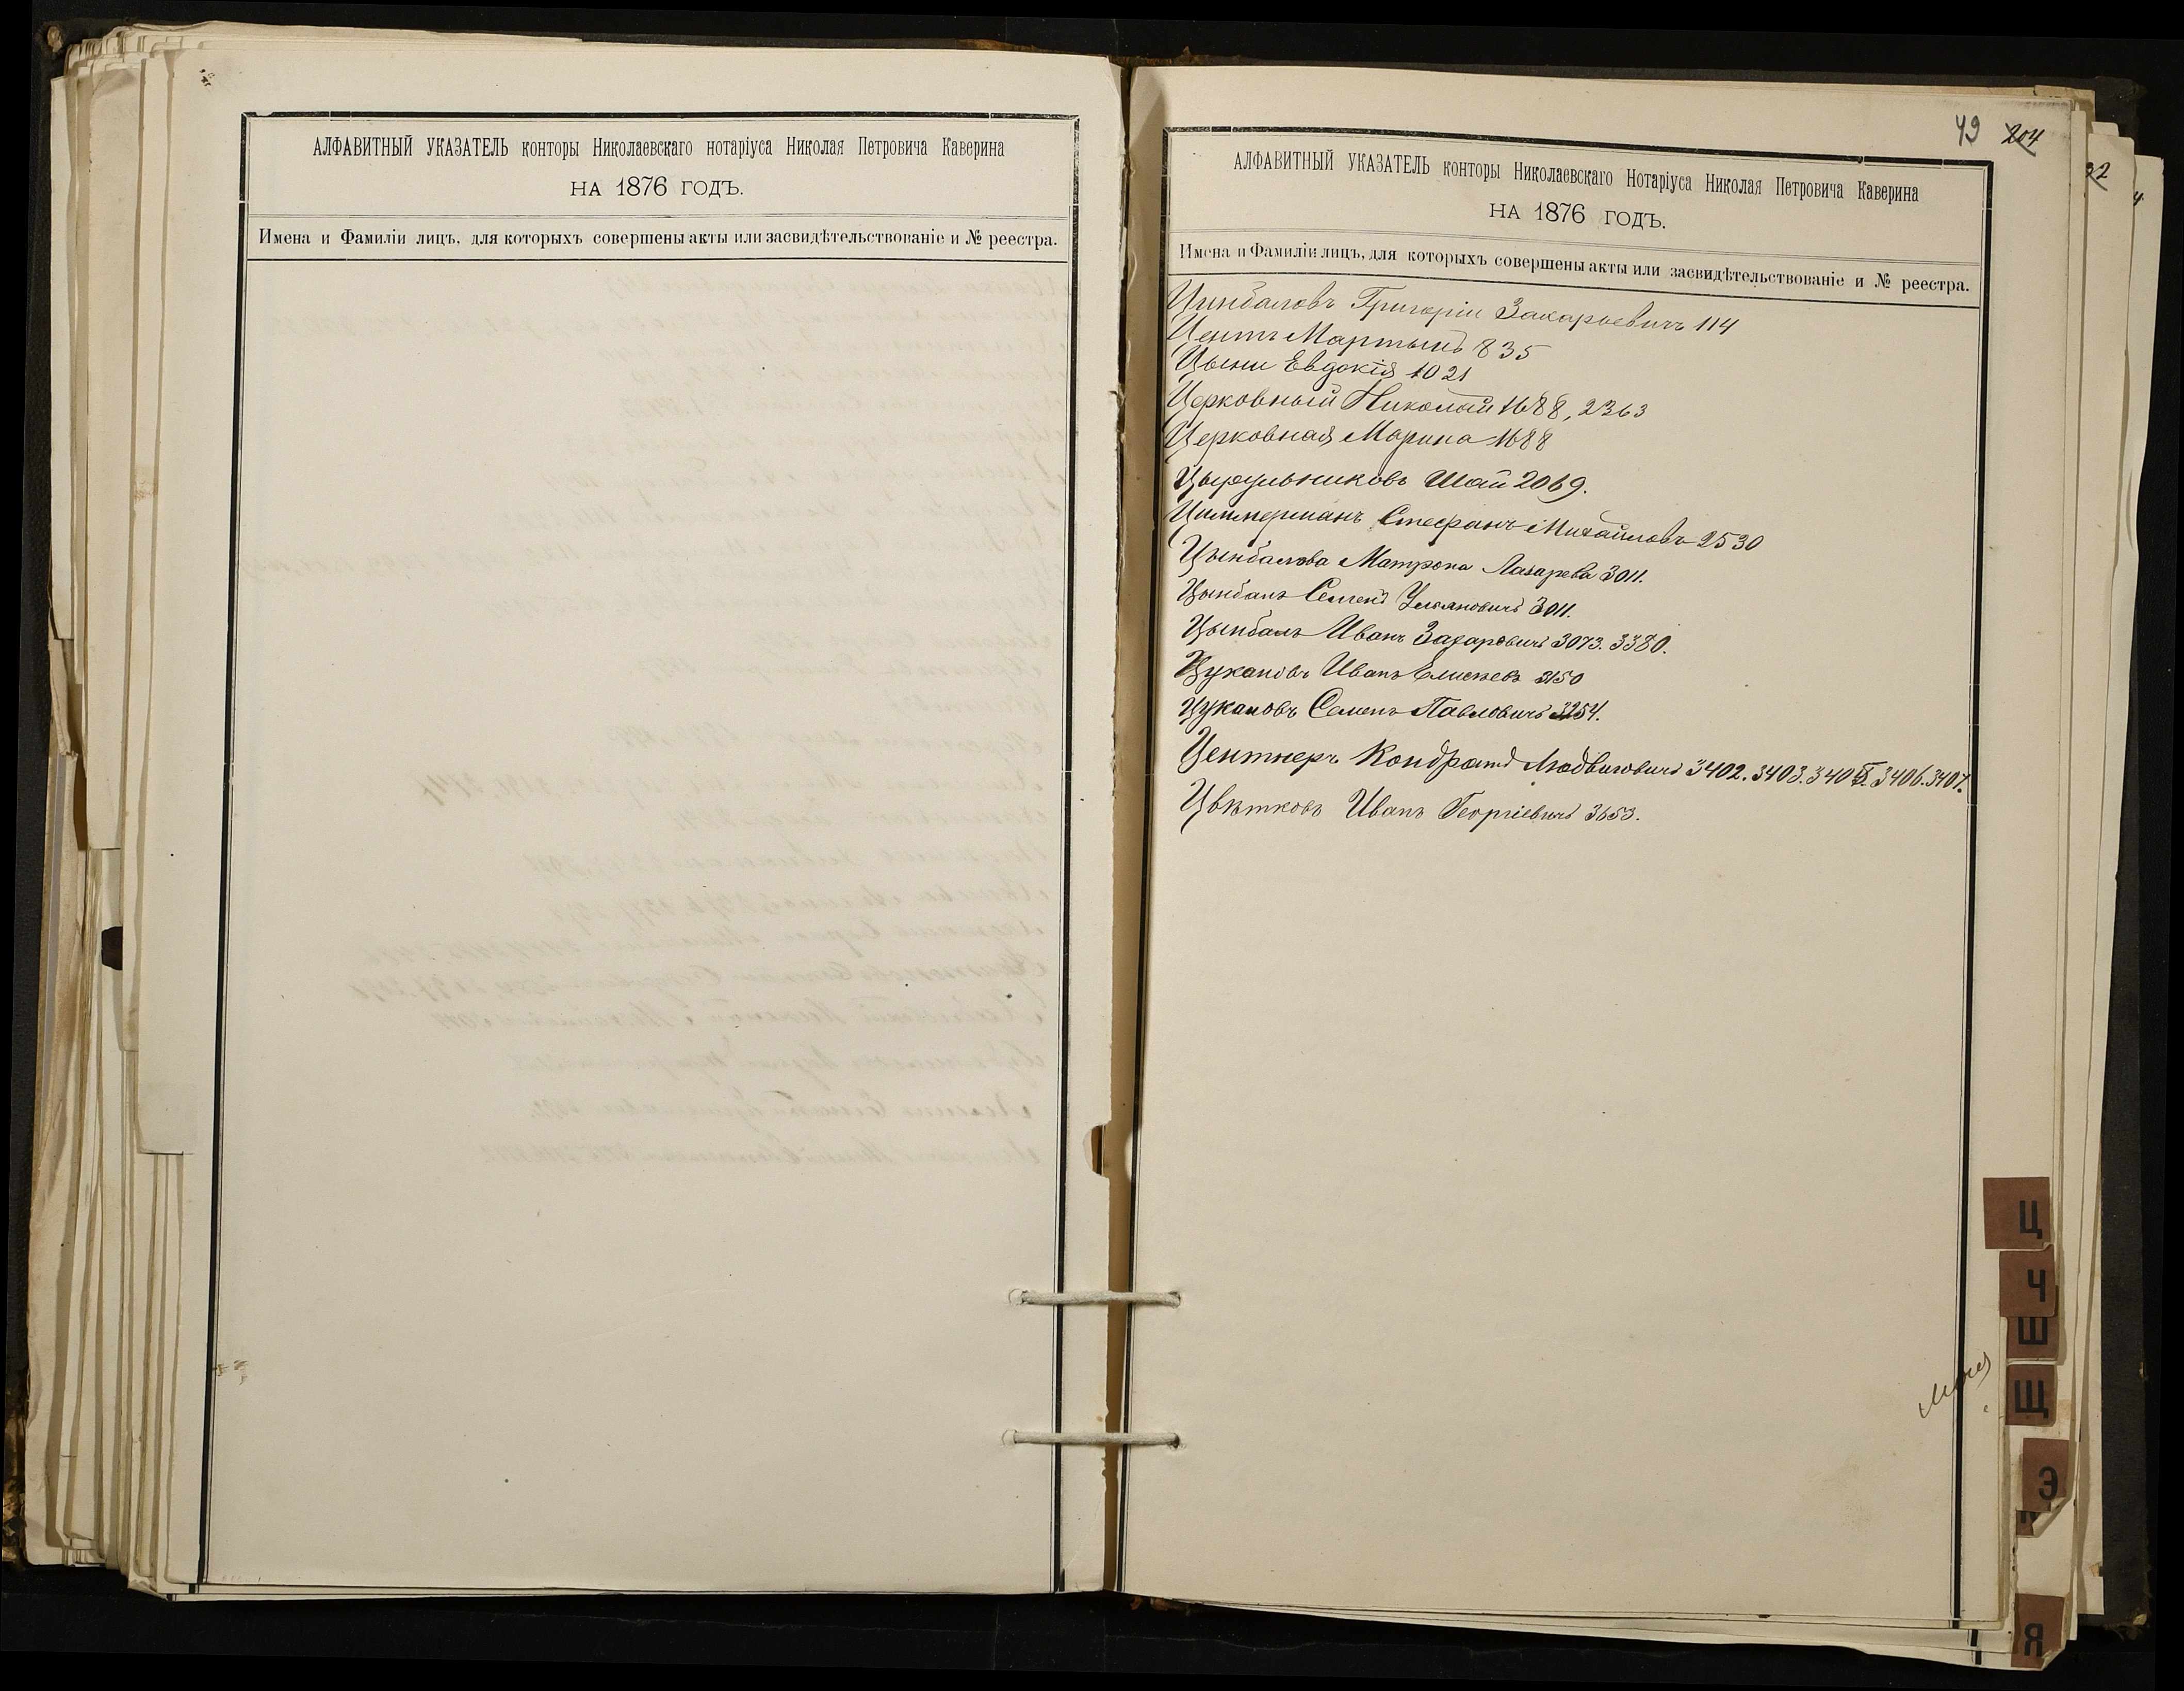 АЛФАВИТНЫЙ УКАЗАТЕЛЬ конторы Николаевскаго нотаріуса Николая Петровича Каверина
НА 1876 ГОДЪ.
Имена и Фамиліи лицъ, для которыхъ совершены акты или засвидѣтельствованіе и № реестра.
49 204
АЛФАВИТНЫЙ УКАЗАТЕЛЬ конторы Николаевскаго Нотаріуса Николая Петровича Каверина
НА 1876 ГОДЪ.
Имена и Фамиліи лицъ, для которыхъ совершены акты или засвидѣтельствованіе и № реестра.
Цинбаловъ Григоріи Захарьевичъ 114
Центъ Мартынъ 835
Евдокія 1021
Церковный Николай 1688, 2363
Церковная Марина 1688
Цырульниковъ Шай 2069.
Циммерманъ Стефанъ Михайловъ 2530
Цынбалова Матрона Лазарева 3011.
Цынбалъ Семенъ Ульяновичъ 3011.
Цынбалъ Иванъ Захаровичъ 3073. 3380.
Цукановъ Иванъ Елисѣевъ 3150
Цукановъ Семенъ Павловичъ 3254.
Центнеръ Кондратъ Людвиговичъ 3402. 3403. 3405. 3406. 3407.
Цвѣтковъ Иванъ Георгіевичъ 3653.
Ц
Ч
Ш
Щ
Э
Я